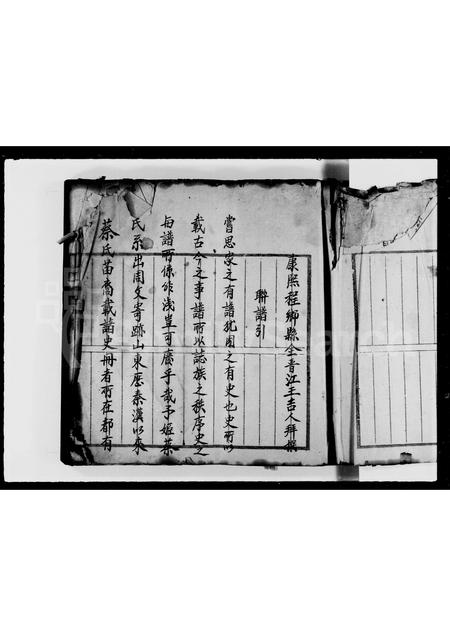 康熙程鄉縣全音江王吉人拜撰
聯譜引
嘗思家之有譜犹國之有史也史所以
載古今之事譜所以誌族之秩序史之
与譜所係非淺豈可廢乎哉予姬葉
氏系出周文寄跡山東歷秦漢以來
蔡氏苗裔載譜史冊者所在都有